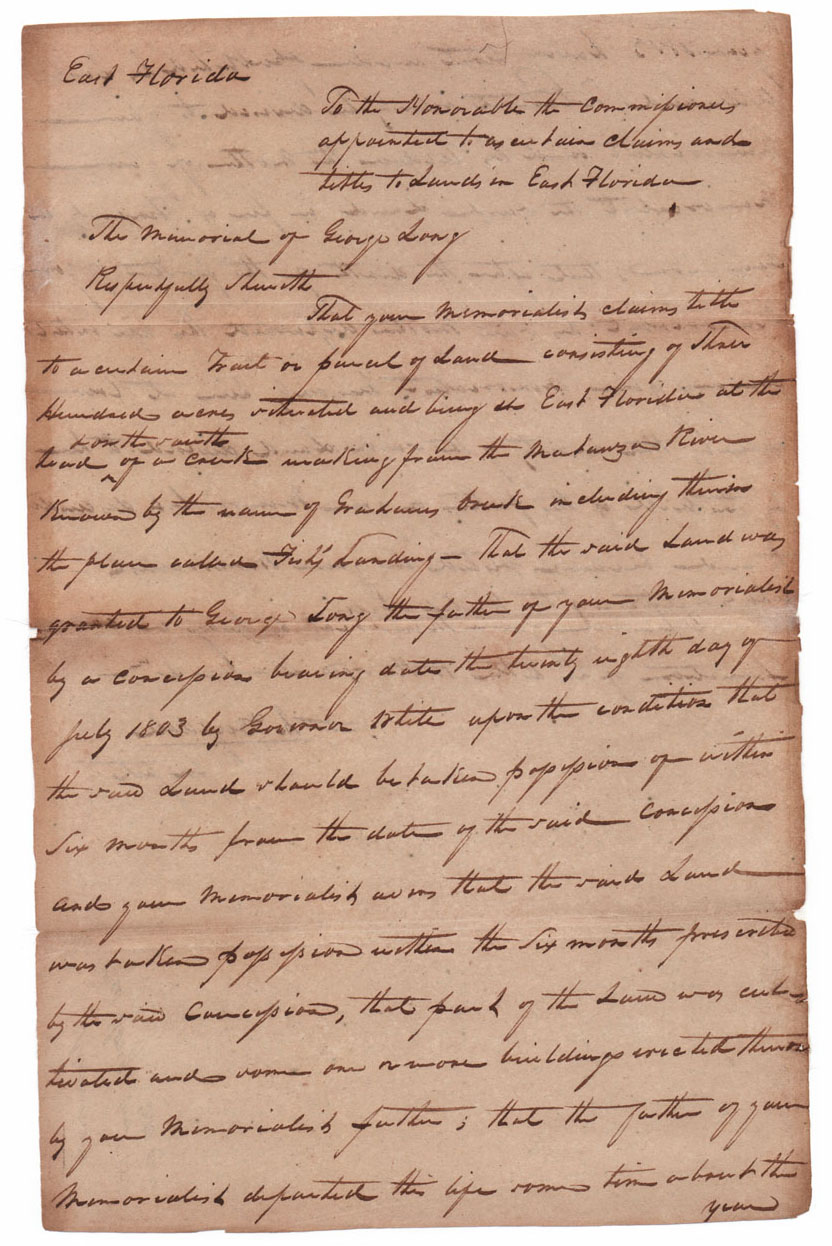 East Florida
To the Honorable the Commissioners
appointed to ascertain claims and
titles to Lands in East Florida
The Memorial of George Long
Respectfully Sheweth
That your Memorialist claims title
to a certain Tract or parcel of Land consisting of Three
Hundred acres situated and being in East Florida at the
& on the south
head of a creek making from the Matanza River
Known by the name of Grahams Creek including therein
the place called Fish's Landing – That the said Land was
granted to George Long the father of your Memorialist
by a concession bearing date the twenty eighth day of
July 1803 by Governor White upon the condition that
the said Land should be taken possession of within
Six months from the date of the said concession
and your Memorialist avers that the said Land
was taken possession within the Six months prescribed
by the said Concession, that part of the Land was cul-
tivated and some one or more buildings erected thereon
by your Memorialist father; that the father of your
Memorialist departed this life some time about the
year